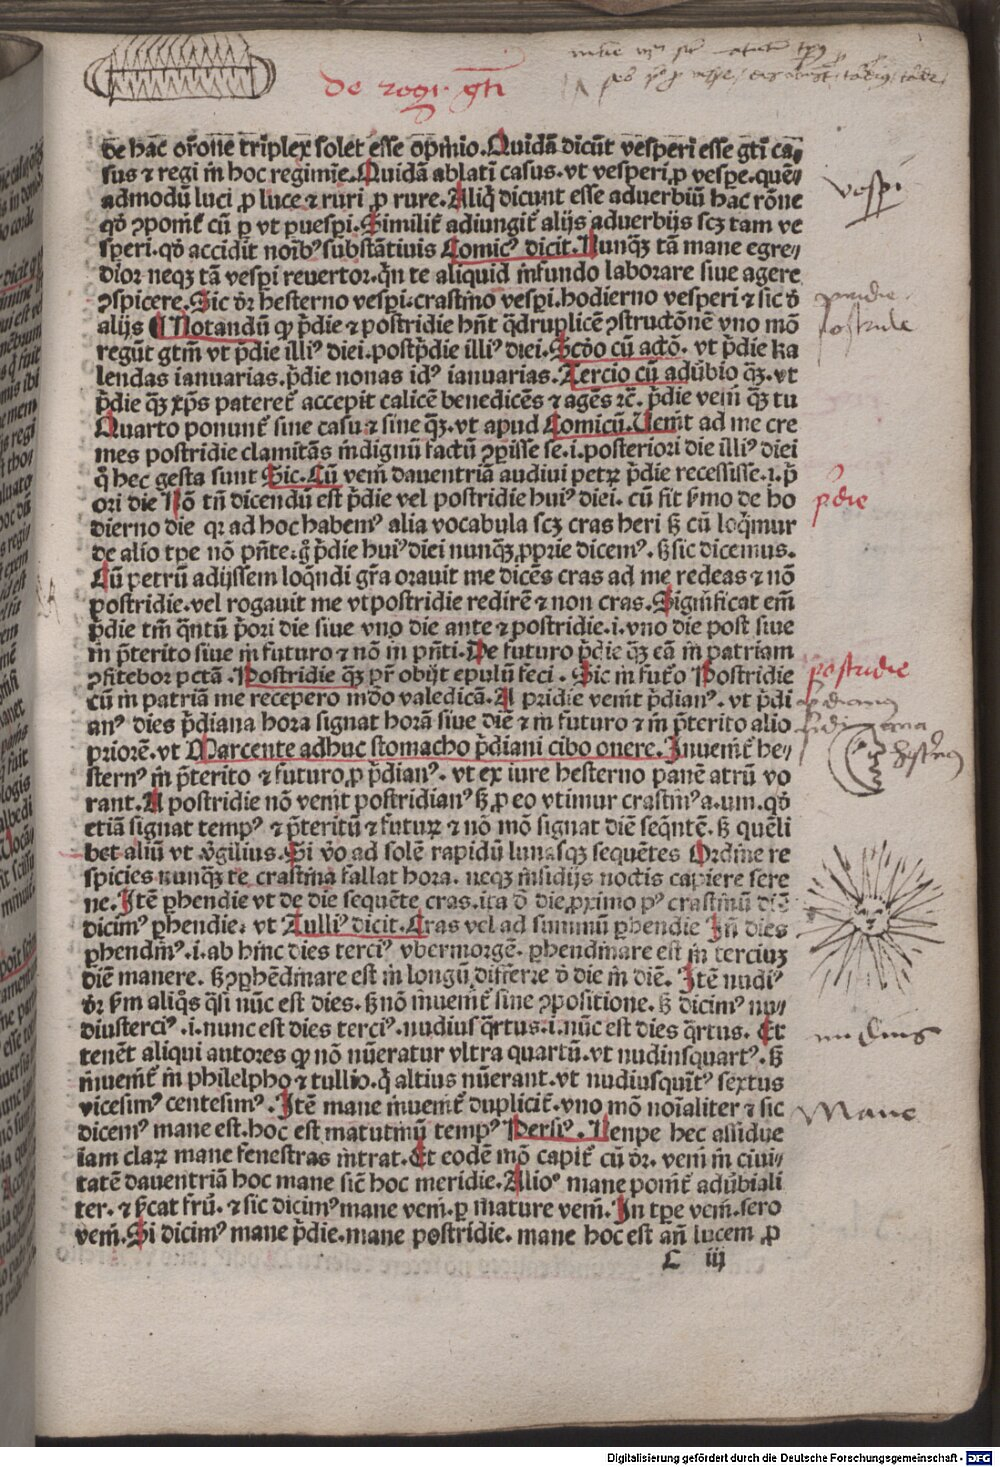 de regi. gti
de hac orōne triplex solet esse opinio. Quidā dicūt vesperi esse gti ca⸗
sus ⁊ regi in hoc regimine. Quidā ablati casus. vt vesperi ꝓ vespe. quē⸗
admodū luci ꝓ luce ⁊ ruri ꝓ rure. Aliq̄ dicunt esse aduerbiū hac rōne
qꝺ ꝯponit᷑ cū per vt puesperi. Similit᷑ adiungit᷑ alijs aduerbijs scꝫ tam ve
speri. qꝺ accidit noībꝰ substātiuis Comicꝰ dicit. Nunqꝫ tā mane egre⸗
dior neqꝫ tā vesperi reuertor. qn te aliquid in fundo laborare siue agere
ꝯspicere. Sic dr̄ hesterno vesperi. crastino vesperi. hodierno vesperi ⁊ sic ꝺ
alijs ¶ Notandū ꝙ p̄die ⁊ postridie hn̄t q̄druplicē ꝯstructōnē vno mō
regūt gtm̄ vt p̄die illiꝰ diei. postp̄die illiꝰ diei. Scꝺo cū actō. vt p̄die ka
lendas ianuarias. p̄die nonas idꝰ ianuarias. Tercio cū adūbio qꝫ. vt
p̄die qꝫ xp̄s pateret᷑ accepit calicē benedicēs ⁊ agēs ⁊c̄. p̄die veni qꝫ tu
Quarto ponunt᷑ sine casu ⁊ sine qꝫ. vt apud Comicū. Venit ad me cre
mes postridie clamitās indignū factū ꝯperisse se. i. posteriori die illiꝰ diei
q̄ hec gesta sunt Sic. Cū veni dauentriā audiui petꝝ p̄die recessisse. i. p̄
ori die Nō tn̄ dicendū est p̄die vel postridie huiꝰ diei. cū sit ẜmo de ho
dierno die qꝛ ad hoc habemꝰ alia vocabula scꝫ cras heri ꝫ cū loq̄mur
de alio tpe nō pn̄te. g̊ p̄die huiꝰ diei nunqꝫ ꝓprie dicemꝰ. ꝫ sic dicemus.
Cū petrū adijssem loq̄ndi gr̄a orauit me dicēs cras ad me redeas ⁊ nō
postridie. vel rogauit me vt postridie redirē ⁊ non cras. Significat em̄
p̄die tm̄ q̄ntū p̄ori die siue vno die ante ⁊ postridie. i. vno die post siue
in p̄terito siue in futuro ⁊ nō in pn̄ti. De futuro p̄die qꝫ eā in patriam
ꝯfitebor pctā. Postridie qꝫ pr̄ obijt epulū feci. Sic in futꝰo Postridie
cū in patriā me recepero mūdo valedicā. A pridie venit p̄dianꝰ. vt p̄di
anꝰ dies p̄diana hora signat horā siue diē ⁊ in futuro ⁊ in p̄terito alio
priorē. vt Marcente adhuc stomacho p̄diani cibo onere. Inuenit᷑ he⸗
sternꝰ in p̄terito ⁊ futuro ꝓ p̄dianꝰ. vt ex iure hesterno panē atrū vo
rant. A postridie nō venit postridianꝰ ꝫ ꝓ eo vtimur crastinꝰ a. um. qꝺ
etiā signat tempꝰ ⁊ p̄teritū ⁊ futuꝝ ⁊ nō mō signat diē seq̄ntē. ꝫ quēli
bet aliū vt v̓gilius. Si v̓o ad solē rapidū lunasqꝫ sequētes Ordine re
spicies nunqꝫ te crastina fallat hora. neqꝫ insidijs noctis capiere sere
ne. Itē perhendie vt de die sequēte cras. ita ꝺ die proximo pꝰ crastinū diē
dicimꝰ perhendie. vt Tulliꝰ dicit. Cras vel ad summū perhendie In̄ dies
perhendinꝰ. i. ab hinc dies terciꝰ vbermorgē. perhendinare est in terciuꝫ
diē manere. ꝫ ꝯperhēdinare est in longū differre ꝺ die in diē. Itē nudiꝰ
dr̄ ẜm aliq̄s q̄si nūc est dies. ꝫ nō inuenit᷑ sine ꝯpositione. ꝫ dicimꝰ nu⸗
diusterciꝰ. i. nunc est dies terciꝰ. nudiusq̄rtus. i. nūc est dies q̄rtus. Et
tenēt aliqui autores ꝙ nō nūeratur vltra quartū. vt nudiusquartꝰ. ꝫ
inuenit᷑ in philelpho ⁊ tullio. q̄ altius nūerant. vt nudiusquītꝰ sextus
vicesimꝰ centesimꝰ. Itē mane inuenit᷑ duplicit᷑. vno mō noīaliter ⁊ sic
dicemꝰ mane est. hoc est matutinū tempꝰ Persiꝰ. Nenpe hec assidue
iam claꝝ mane fenestras intrat. Et eodē mō capit᷑ cū dr̄. veni in ciui⸗
tatē dauentriā hoc mane sicē hoc meridie. Alioꝰ mane ponit᷑ adūbiali
ter. ⁊ ẜcat frū. ⁊ sic dicimꝰ mane veni. ꝑ mature veni. In tpe veni. sero
veni. Si dicimꝰ mane p̄die. mane postridie. mane hoc est an̄ lucem ꝓ
C iij
vesperi
pridie
postridie
p̄die
postridie
p̄dianꝰ
hesternꝰ
nudius
Mane
Digitalisierung gefördert durch die Deutsche Forschungsgemeinschaft - DFG